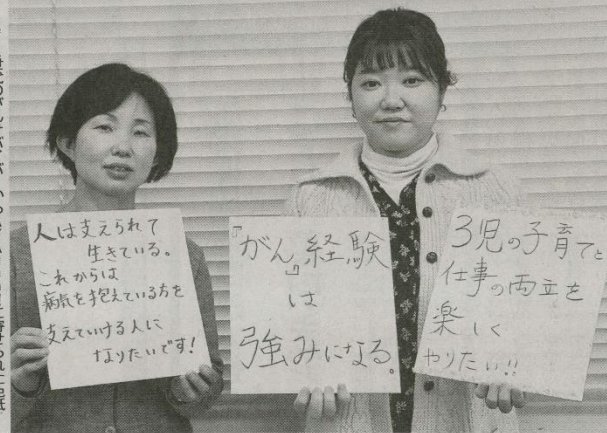 人は支えられて
生きている。
これからは
病気を抱えている方を
支えていける人に
なりたいです!
『がん』経験
は
強みになる。
3児の子育てと
仕事の両立を
楽しく
やりたい!!